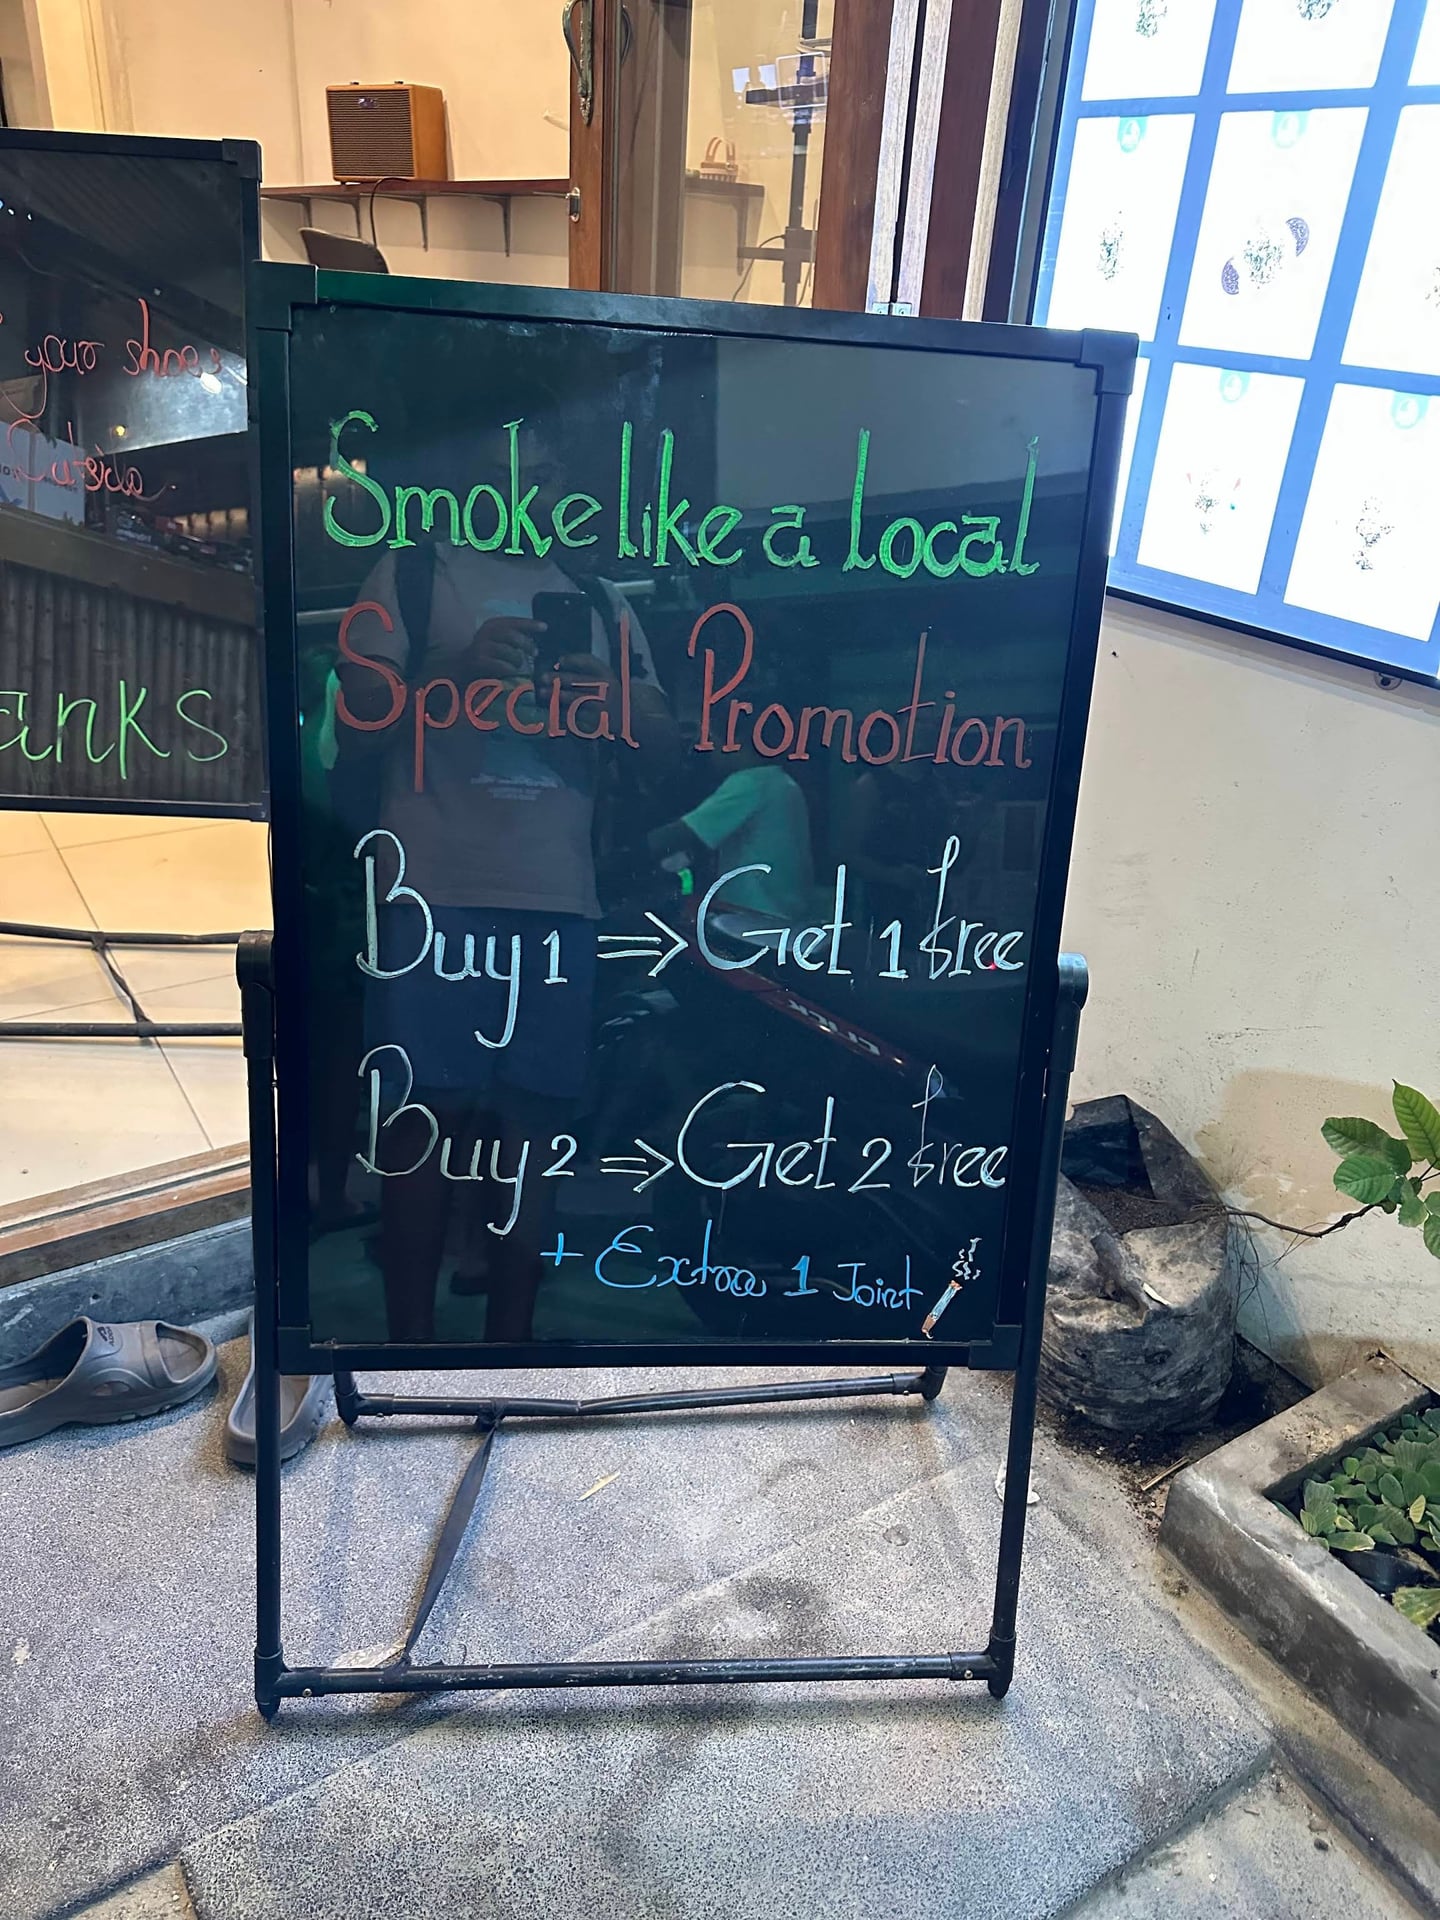 your shoes
Outside.
anks
Smoke like a local
Special Promotion
Buy 1 ⇒ Get 1 free
Buy 2 ⇒ Get 2 free
+ Extra 1 Joint
CLICK